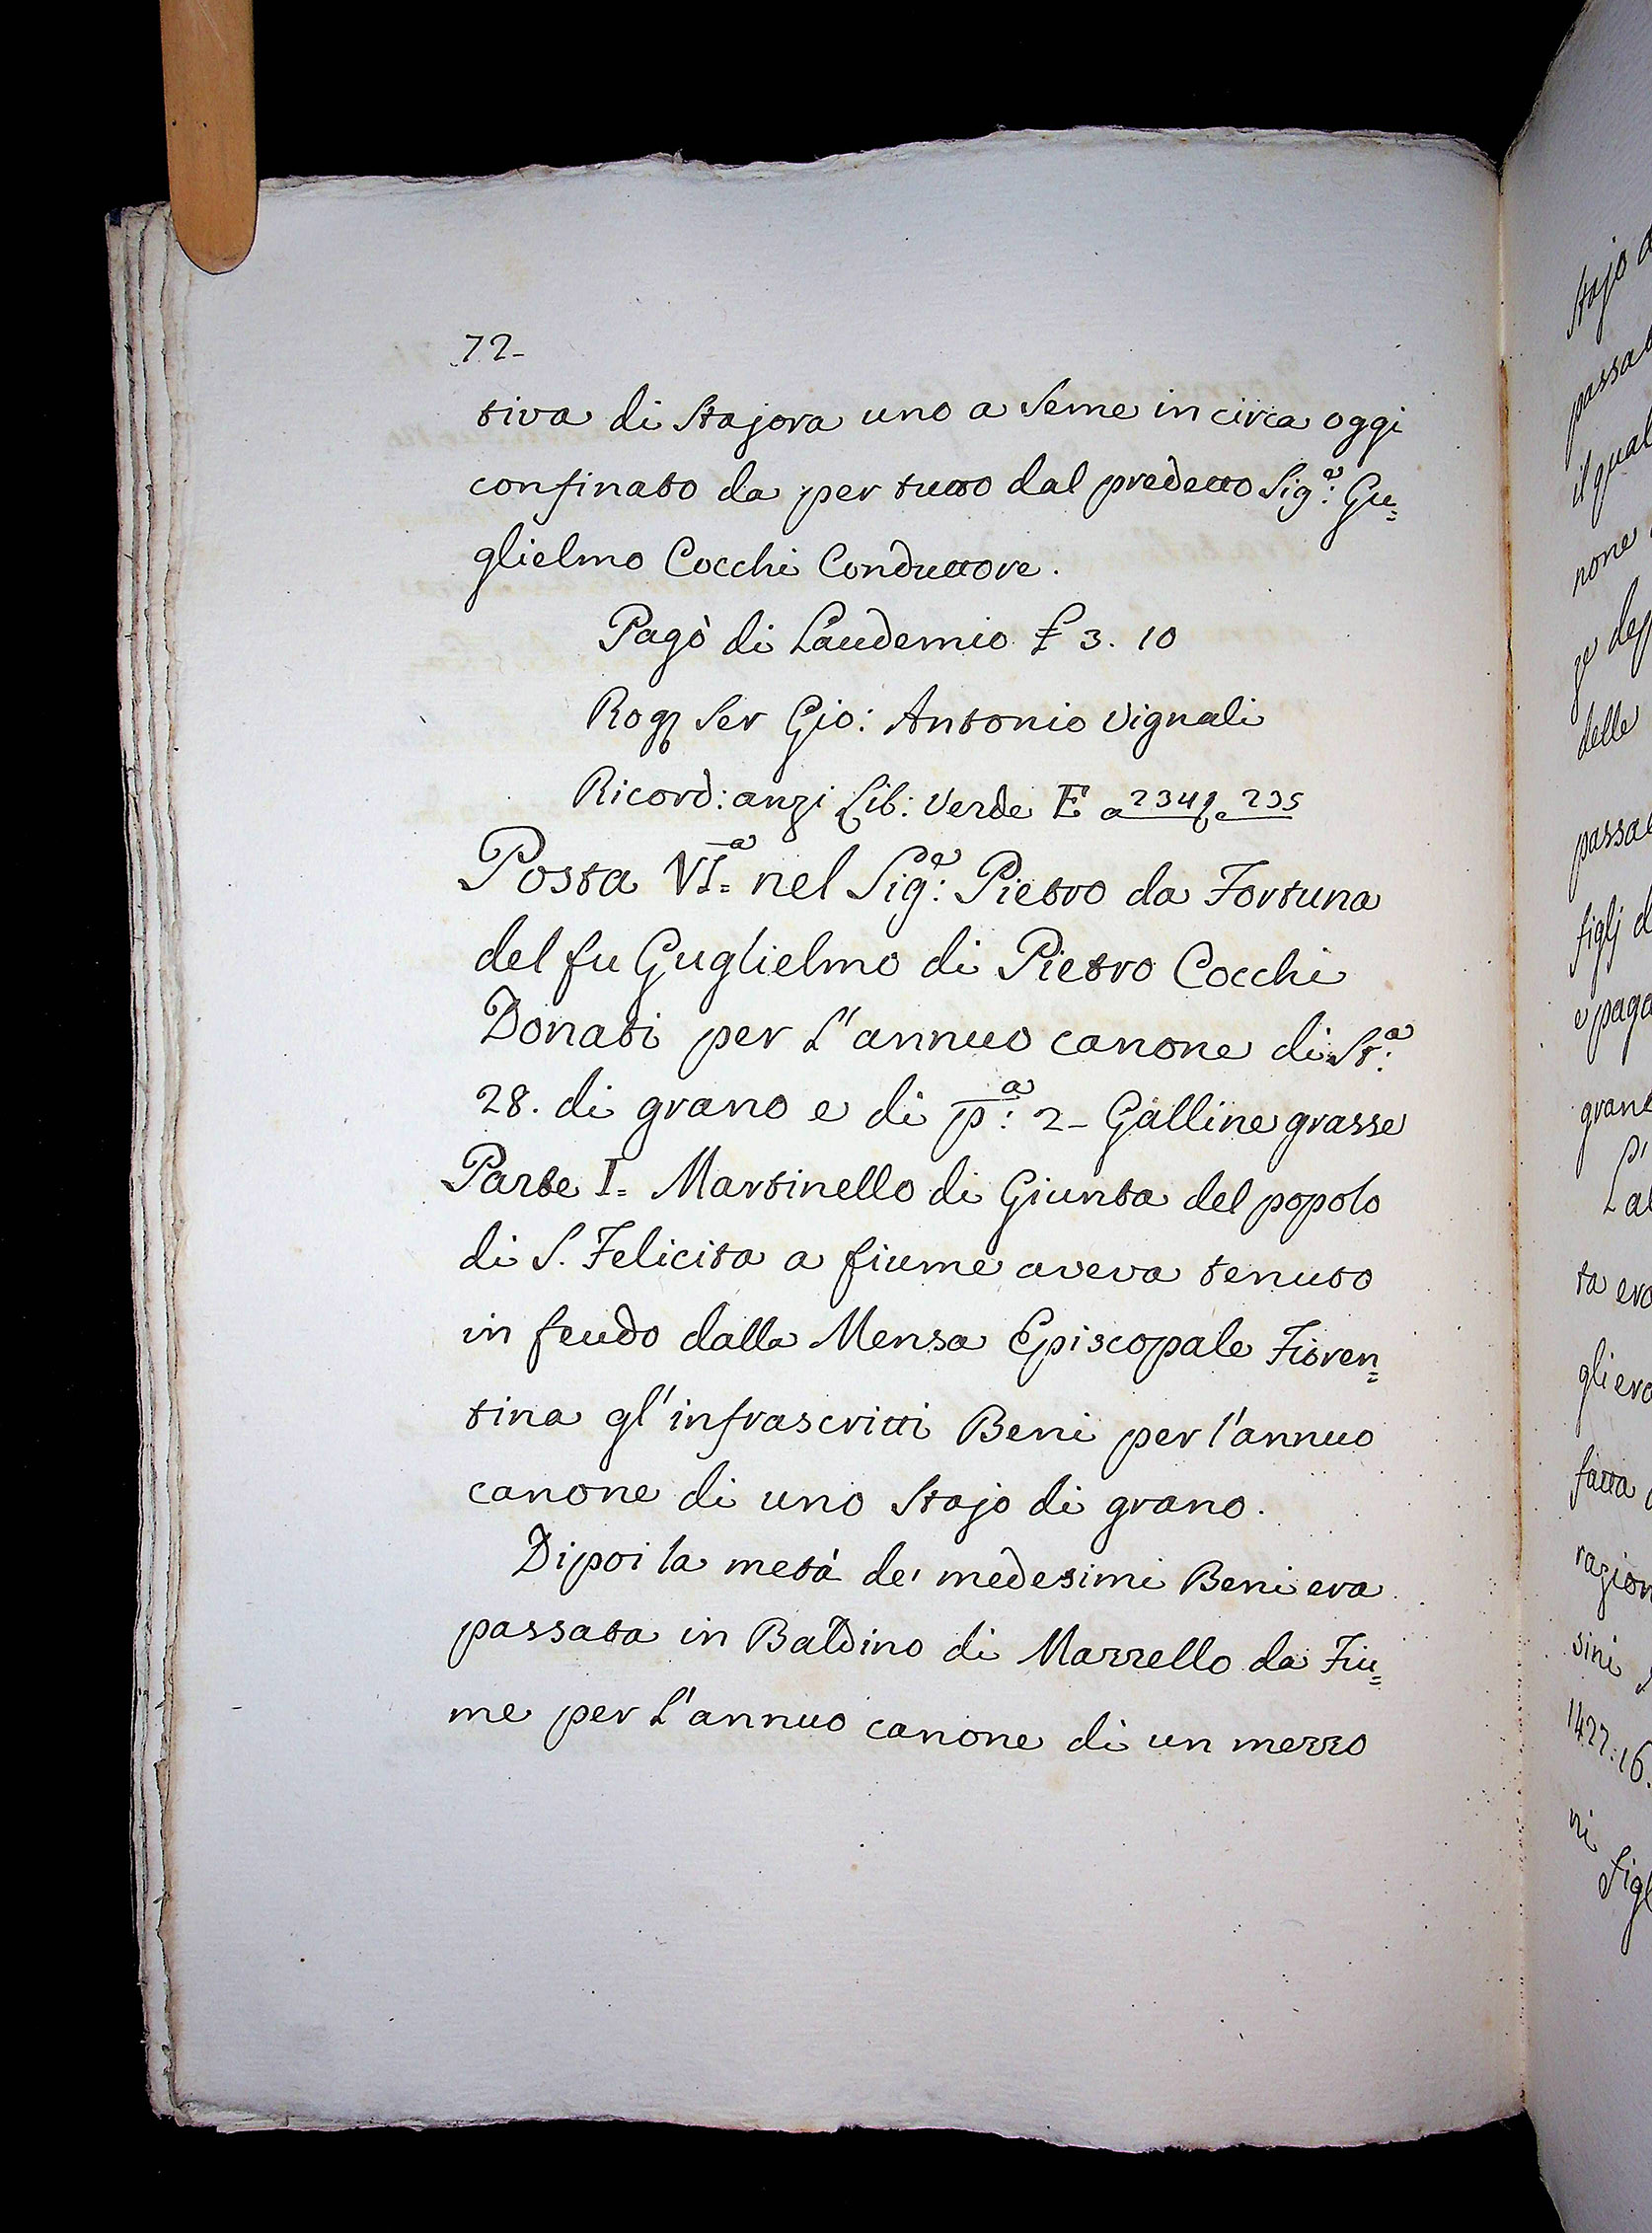 72-
tiva di Stajora uno a Seme in circa oggi
confinato da per tutto dal predetto Sig.ᵉ Gu=
glielmo Cocchi Conduttore.
Pagò di Laudemio £ 3. 10
Rog. Ser Gio: Antonio Vignali
Ricord: anzi Lib: Verde E a 234 e 235
Posta VI.ᵃ nel Sig.ᵉ: Pietro da Fortuna
del fu Guglielmo di Pietro Cocchi
Donati per l'annuo canone di St.ᵃ
28. di grano e di p.ᵃ: 2- Galline grasse
Parte I= Martinello di Giunta del popolo
di S. Felicita a fiume aveva tenuto
in feudo dalla Mensa Episcopale Fioren=
tina gl'infrascritti Beni per l'annuo
canone di uno Stajo di grano.
Dipoi la metà de' medesimi Beni era
passata in Baldino di Mazzello da Fiu=
me per l'annuo canone di un mezzo
passa
il qual
none
delle
passa
figlj d
e paga
gran
La
ta era
gli era
fatta
ragion
sini
1427:16.
ni
figl